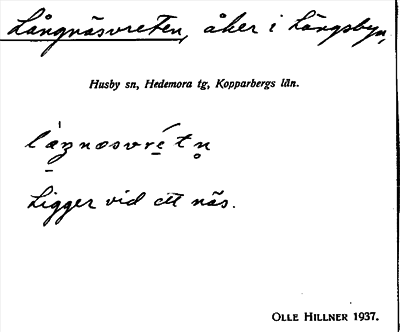 Långnäsvreten, åker i Långsbyn,
Husby sn, Hedemora tg, Kopparbergs län.
Ligger vid ett näs.
OLLE HILLNER 1937.